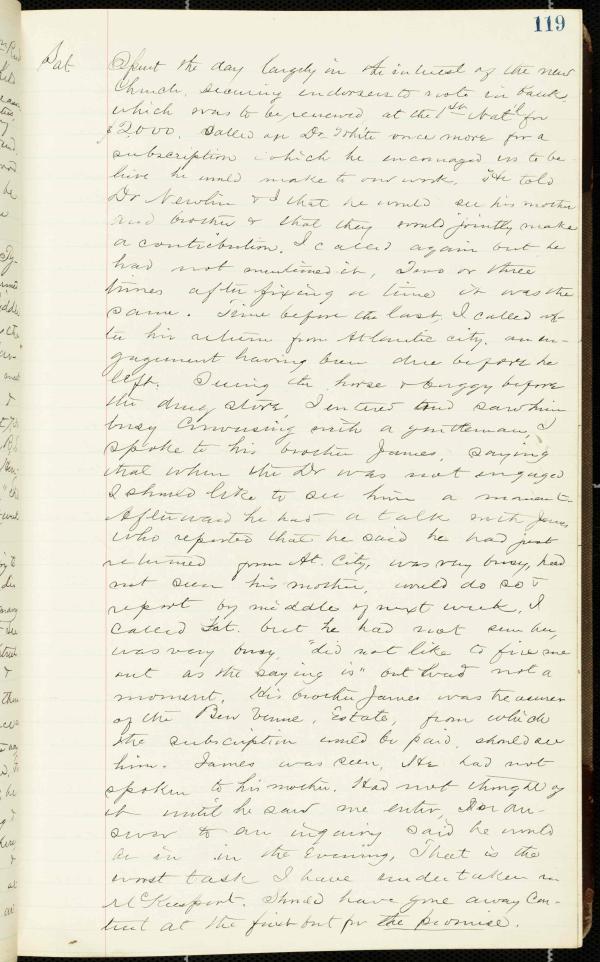 119
Sat Spent the day largely in the interest of the new
Church, securing indorsers to note in bank,
which was to be renewed at the 1st Nat'l for
$2000. Called on Dr. White once more for a
subscription which he encouraged us to be-
lieve he would make to our work. He told
Dr Newlin & I that he would see his mother
and brother & that they would jointly make
a contribution. I called again but he
had not mentioned it, Two or three
times after fixing a time it was the
same. Time before the last, I called af-
ter his return from Atlantic city, an en-
gagement having been due before he
left. Seeing the horse & buggy before
the drug store, I entered and saw him
busy conversing with a gentleman, I
spoke to his brother James, saying
that when the Dr was not engaged
I should like to see him a moment.
Afterward he had a talk with James
who reported that he said he had just
returned from At. City, was very busy, had
not seen his mother, would do so &
report by middle of next week, I
called Sat. but he had not seen her,
was very busy, "did not like to fire me
out as the saying is" but had not a
moment, His brother James was treasurer
of the Ben Venue, Estate, from which
the subscription would be paid, should see
him. James was seen, He had not
spoken to his mother. Had not thought of
it until he saw me enter, In an-
swer to an inquiry said he would
be in in the Evening, That is the
worst task I have undertaken in
McKeesport. Should have gone away con-
tent at the first but for the promise.